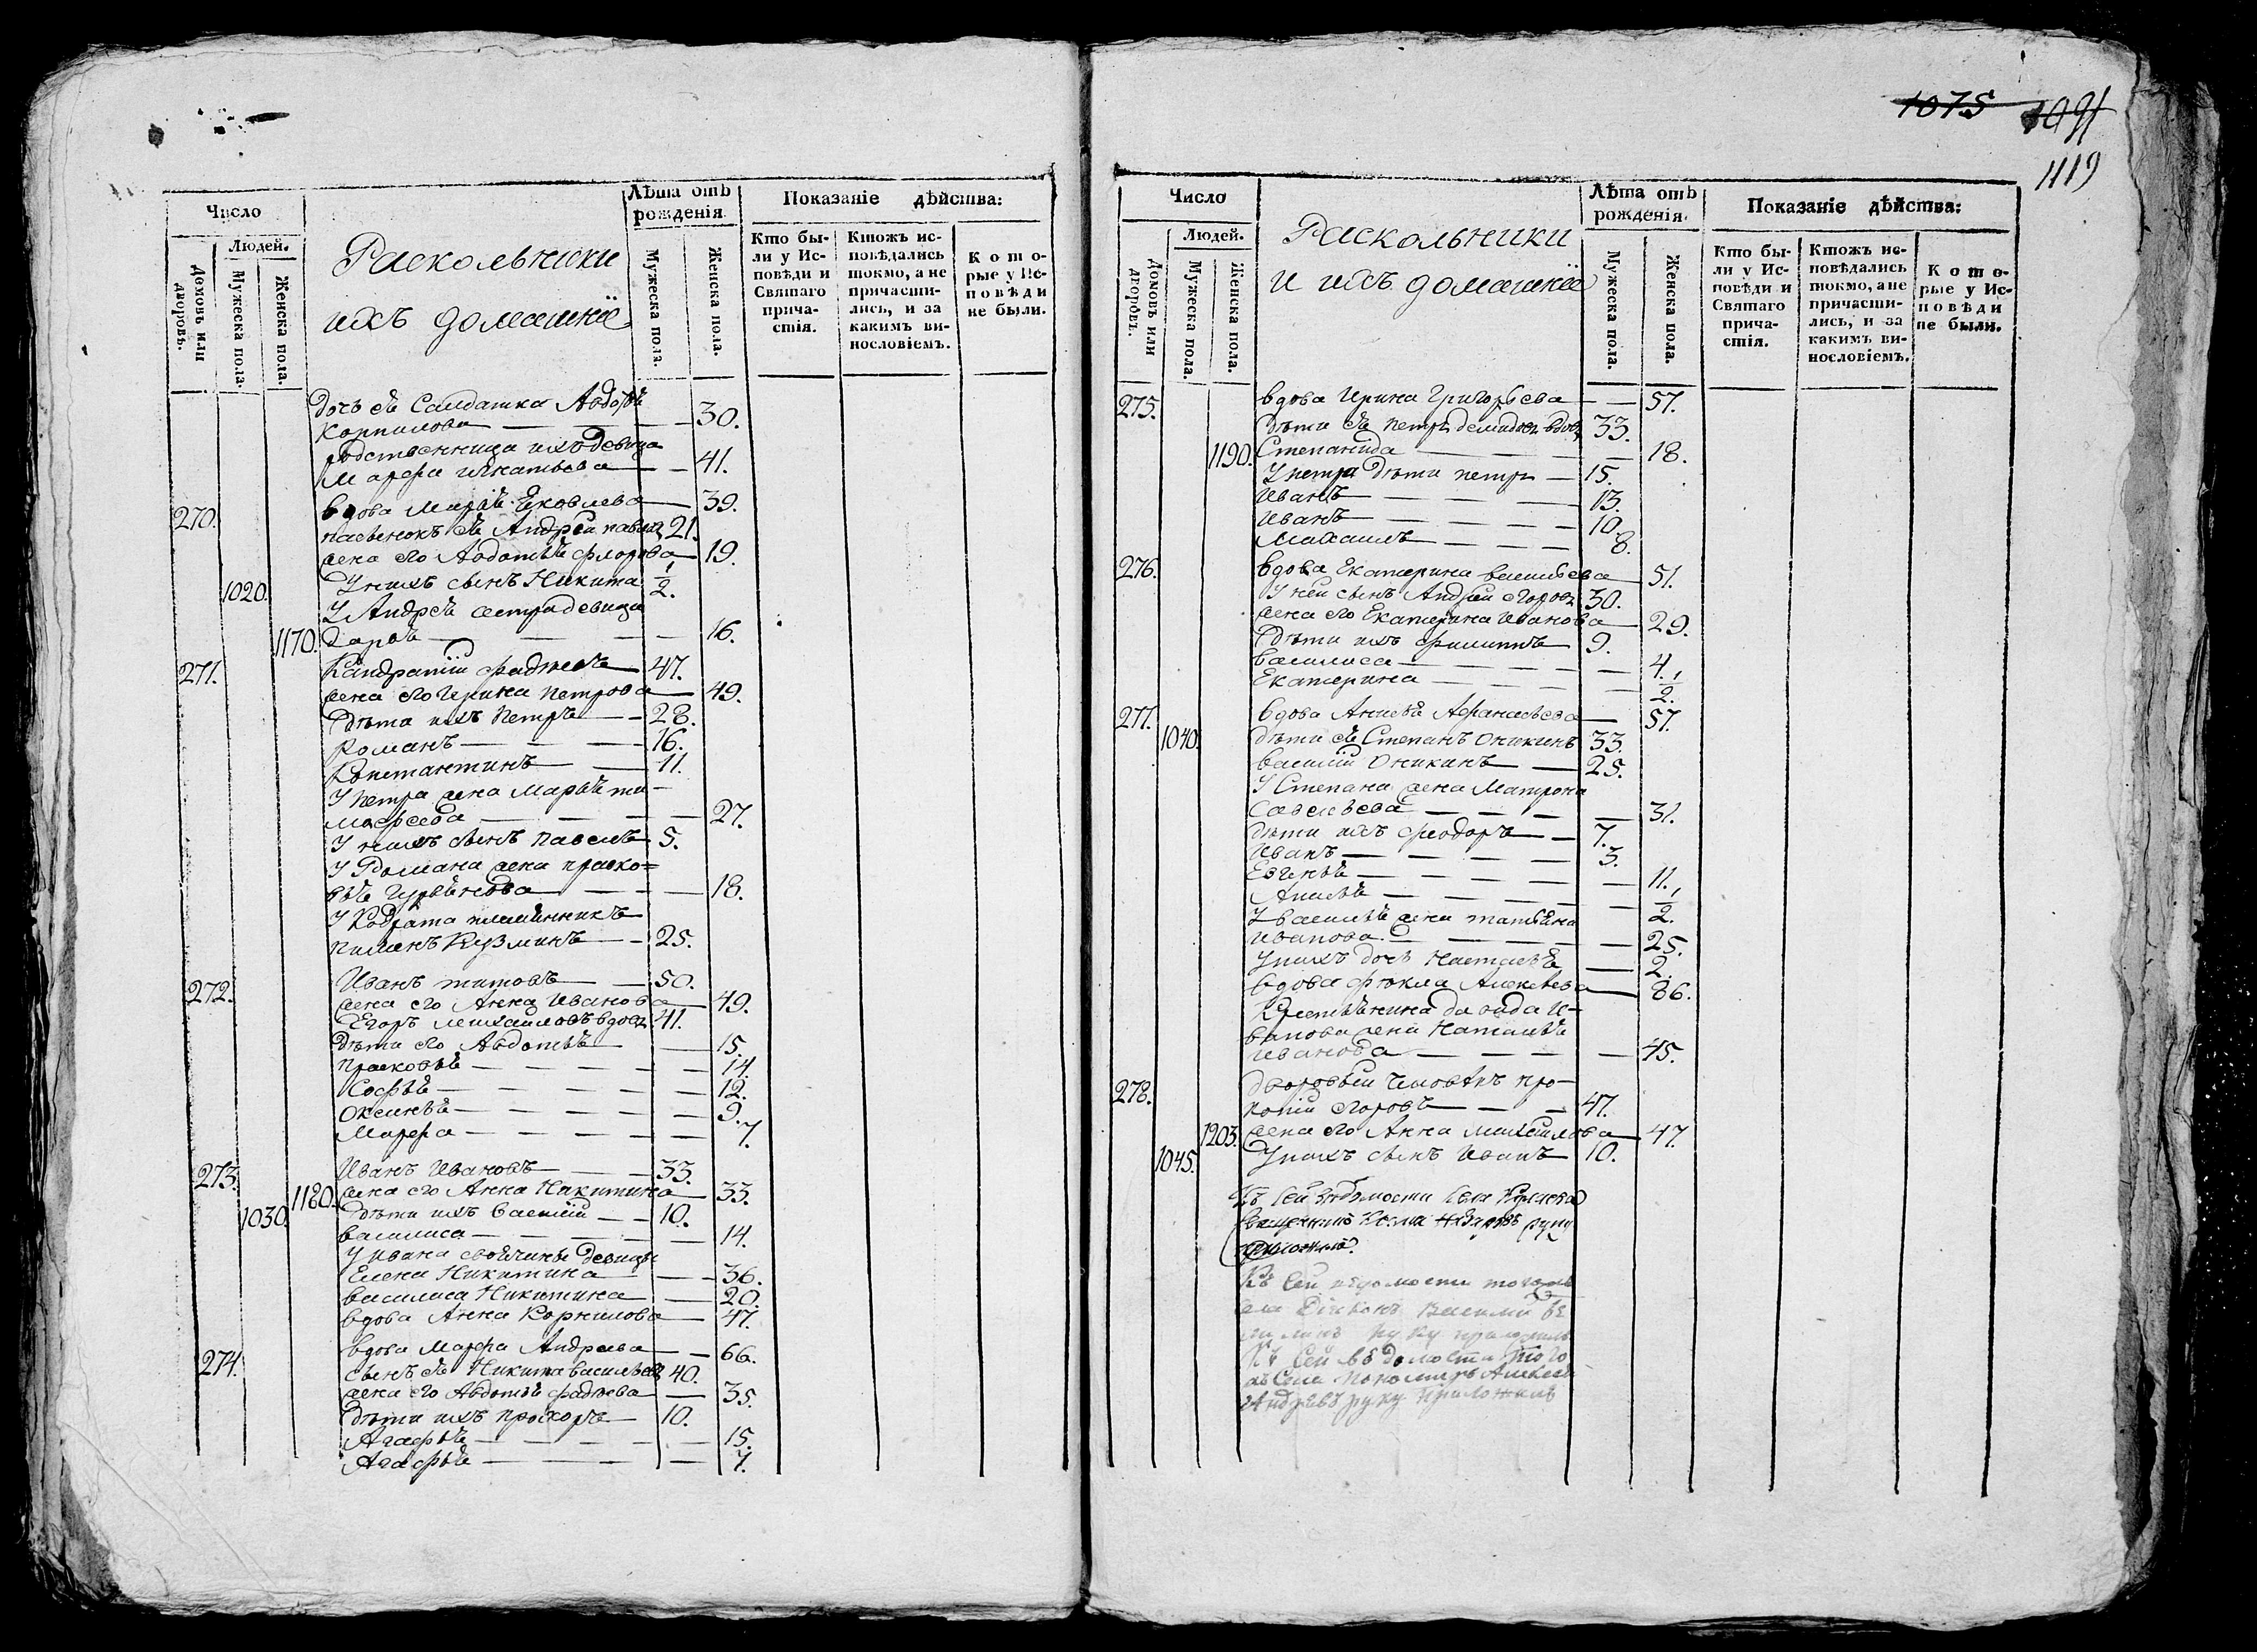 1075 1091
1119
Число
Людей.
Домовъ или дворовъ.
Мужеска пола.
Женска пола.
Раскольники
ихъ домашніе
Лѣта отъ рожденія
Мужеска пола.
Женска пола.
Показаніе дѣйства:
Кто были у Исповѣди и Святаго причастія.
Ктожъ исповѣдались токмо, а не причастились, и за какимъ винословіемъ.
Которые у Исповѣди не были.
дочь ея Салдатка Авдотья
Корнилова — 30.
родственница ихъ девица
Марфа Игнатьева — 41.
270. вдова Марья Яковлева — 39.
пасынокъ ея Андрей 21.
жена его Авдотья Флорова — 19.
1020. У нихъ сынъ Никита 1/2.
У Андрея сестра девица
1170. Дарья — 16.
271. Кандратий Фадѣевъ — 47.
жена его Ирина Петрова — 49.
Дѣти ихъ Петръ — 28.
Романъ — 16.
Констянтинъ — 11.
У Петра жена Марья Ти-
мофеева — 27.
У нихъ сынъ Павелъ — 5.
У Романа жена Праско=
вья Гурьянова — 18.
У Кодрата племянникъ
Пиминъ Кузминъ — 25.
272. Иванъ Титовъ — 50.
жена его Анна Иванова — 49.
Егоръ Михаиловъ вдовъ 41.
Дѣти его Авдотья — 15.
Прасковья — 14.
Софья — 12.
Оксинья — 9.
Марфа — 7.
273. Иванъ Ивановъ — 33.
1180. жена его Анна Никитина — 33.
1030. Дѣти ихъ Василій — 10.
Василиса — 14.
У Ивана свойчины девицы
Елена Никитина — 36.
Василиса Никитина — 20.
вдова Анна Корнилова — 47.
274. вдова Марфа Андреева — 66.
сынъ ея Никита Васильевъ 40.
жена его Авдотья Фадѣева — 35.
Дѣти ихъ Прохоръ — 10.
Агафья — 15.
Агафья — 7.
Число
Людей.
Домовъ или дворовъ.
Мужеска пола.
Женска пола.
Раскольники
и ихъ домашніе
Лѣта отъ рожденія.
Мужеска пола.
Женска пола.
Показаніе дѣйства:
Кто были у Исповѣди и Святаго причастія.
Ктожъ исповѣдались токмо, а не причастились, и за какимъ винословіемъ.
Которые у Исповѣди не были.
275. вдова Ирина Григорьева — 57.
Дѣти ея Петръ Демидовъ вдовъ 33.
1190. Степанида — 18.
У Петра Дѣти Петръ — 15.
Иванъ — 13.
Иванъ — 10.
Михаилъ — 8.
276. вдова Екатерина Васильева — 51.
У ней сынъ Андрей Егоровъ 30.
жена его Екатерина Иванова — 29.
Дѣти ихъ Филиппъ 9.
Василиса — 4.
Екатерина — 1/2.
277. вдова Анисья Афанасьева — 57.
1040. Дѣти ея Степанъ Оникинъ 33.
Василій Оникинъ — 25.
У Степана жена Матрона
Савельева — 31.
Дѣти ихъ Феодоръ — 7.
Иванъ — 3.
Евгенья — 11.
Анисья — 1/2.
У Василья жена Татьяна
Иванова — 25.
У нихъ дочь Наталья — 2.
вдова Фѣкла Алексѣева — 86.
Крестьянина Давида И-
ванова жена Наталья
Иванова — 45.
278. Дворовый человѣкъ Про-
копій Егоровъ — 47.
1203. жена его Анна Михаилова — 47.
1045. У нихъ сынъ Иванъ 10.
Къ сей вѣдомости села
Священникъ Козма руку
приложилъ.
Къ сей вѣдомости тогожъ
села Дьяконъ Василий
руку приложилъ
Къ сей вѣдомости того
жъ села Пономарь Алексей
Андревъ руку приложилъ